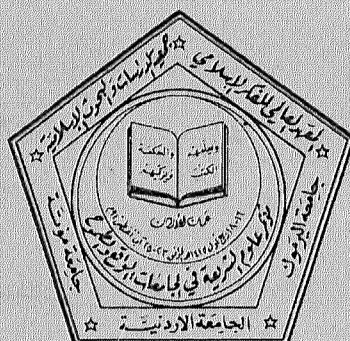 المعهد العالمي للفكر الإسلامي
جمعية الدراسات والبحوث الإسلامية
جامعة اليرموك
جامعة مؤتة
الجامعة الاردنية
ويعلمهم
الكتب
والحكمة
ويزكيهم
عمان الأردن
مؤتمر علوم الشريعة في الجامعات الواقع والطموح